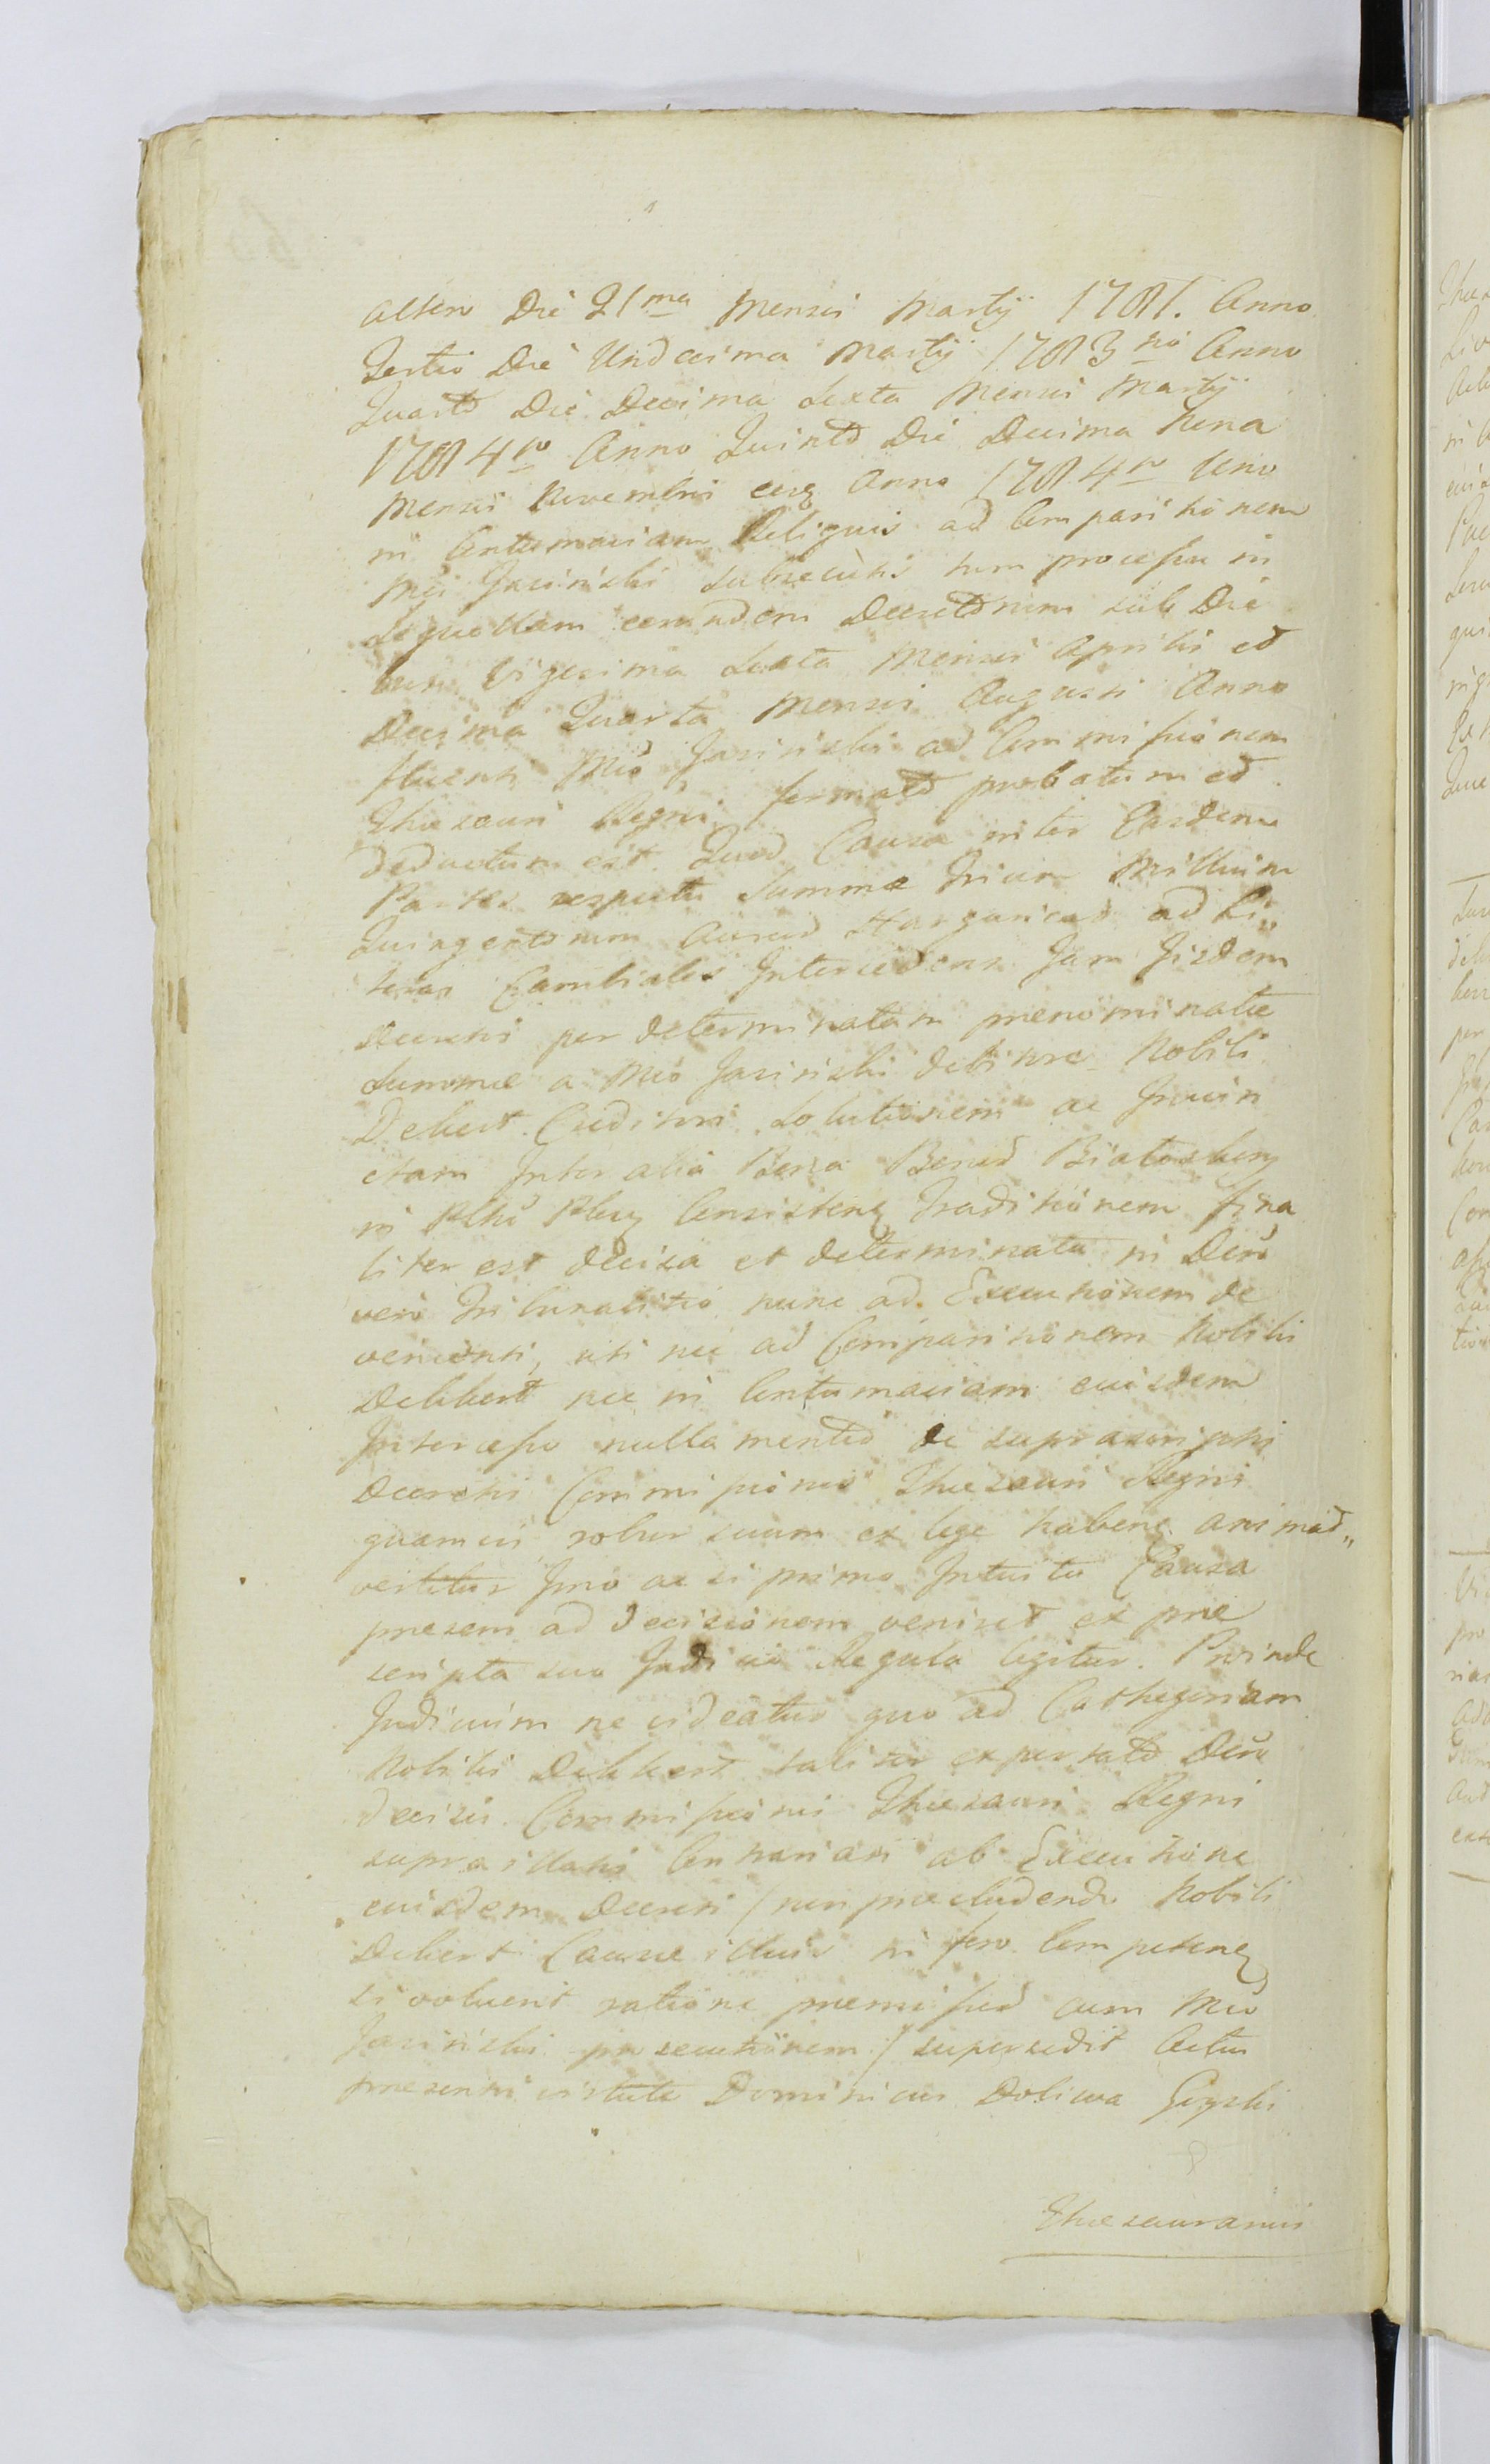 altero Die 21ma Mensis Martij 1781. Anno
Tertio Die Undecima Martij 1783tio Anno
Quarto Die Decima Sexta Mensis Martij
1784to Anno Quinto Die Decima Nona
Mensis Novembris eiusq Anno 1784to
in Contumaciam Reliquis ad Comparitionem
Mci Jasinski subsecutis tum processu in
Sequellam eorundem Decretorum sub Die
Vigesima Sexta Mensis Aprilis et
Decima Quarta Mensis Augusti Anno
fluenti Mco Jasinski ad Commissionem
Thesauri Regni formato probatum et
deductum est. Quod Causa inter Easdem
Partes respectu Summæ Trium Millium
Quingentorum Aureor Hungarical ad Li„
teras Cambiales Intercedens Jam Jisdem
Decretis per determinatam prenominatæ
Summæ a Mco Jasinski debitore Nobili
Debert Creditori Solutionem ac Juxta
etam Inter alia Bona Bonor
in Plttu Consistens Traditionem fina
liter est decisa et determinata in Decr
vero Tribunalitio nunc ad Executionem de
venienti, uti nec ad Comparitionem Nobilis
Debbert nec in Contumaciam eiusdem
Intercesso nulla mentio de suprascriptis
Decretis Commissionis Thesauri Regni
quamvis robur suum ex lege habens animad„
vertitur Jmo ac si primo Intuitu Causa
presens ad decisionem venisset ex præ
scripta suo Judicio Regula legitur. Proinde
Judicium ne videatur quo ad Cathegoriam
Nobilis Debbert taliter expresato Decr
decisis Commissionis Thesauri Regni
supra illatis Contrariari ab Executione
eiusdem Decreti / non præcludendo Nobili
Debert Causæ illius in foro Competenq
si voluerit ratione premissor cum Mco
Jasinski prosecutionem / supersedit Actus
presentis virtute Dominicus Doliwa Giżycki
Thesaurarius